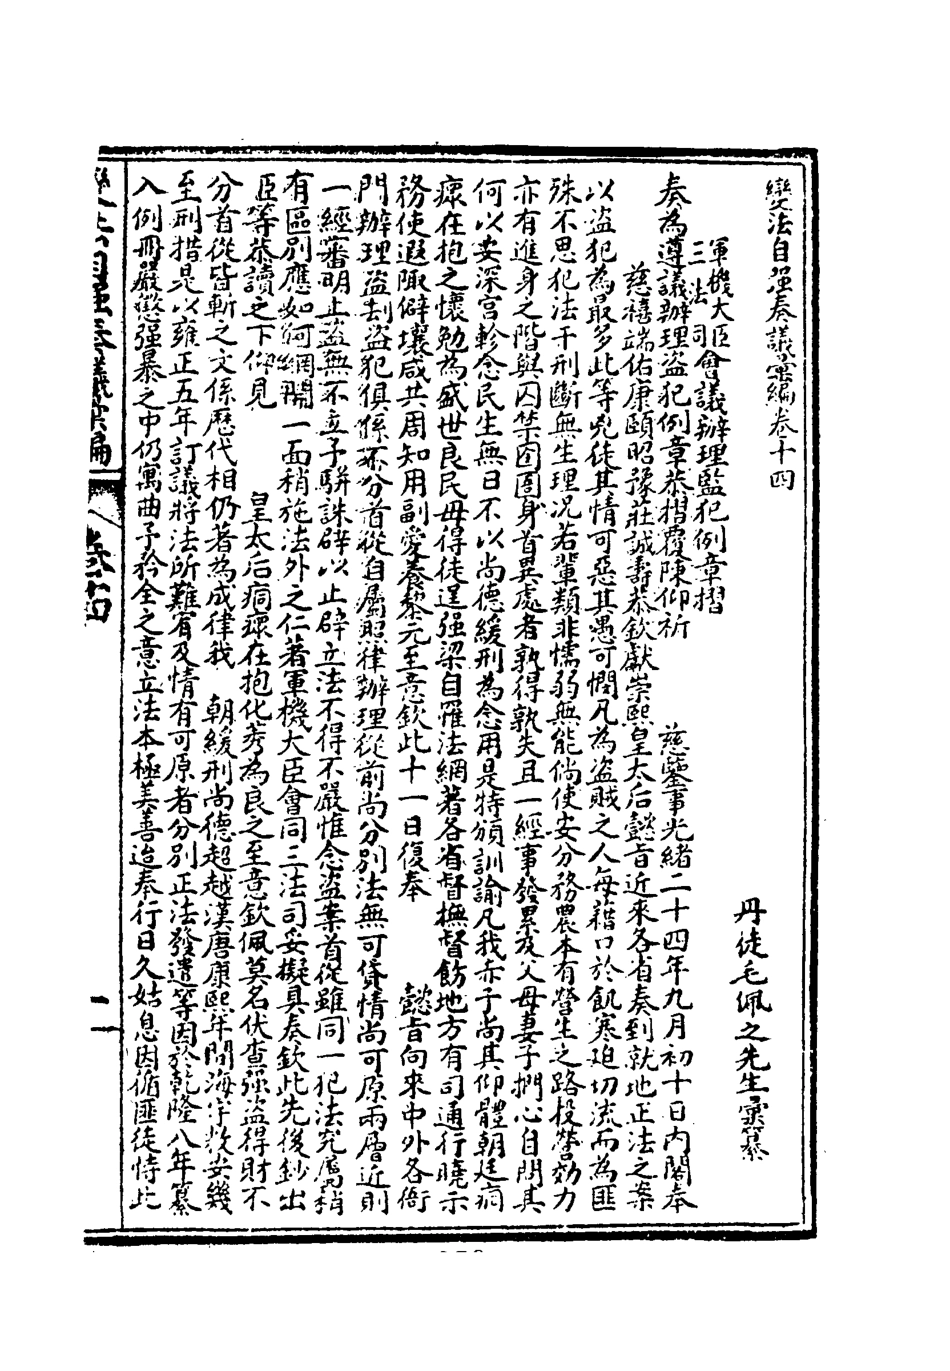 變法自强奏議彙編卷十四
丹徒毛佩之先生彙纂
軍機大臣三法司會議辦理盜犯例章摺
奏為遵議辦理盜犯例章恭摺覆陳仰祈　慈鑒事光緒二十四年九月初十日內閣奉
慈禧端佑康頤昭豫莊誠壽恭欽獻崇熙皇太后懿旨近來各省奏到就地正法之案
以盜犯為最多此等兇徒其情可惡其愚可憫凡為盜賊之人每藉口於飢寒迫切流而為匪
殊不思犯法干刑斷無生理况若輩類非懦弱無能倘使安分務農本有營生之路投營効力
亦有進身之階與囚禁囹圄身首異處者孰得孰失且一經事發累及父母妻子捫心自問其
何以安深宮軫念民生無日不以尚德緩刑為念用是特頒訓諭凡我赤子尚其仰體朝廷痌
瘝在抱之懷勉為盛世良民毋得徒逞强梁自罹法網著各省督撫督飭地方有司通行曉示
務使遐陬僻壤咸共周知用副愛養黎元至意欽此十一日復奉　懿旨向來中外各衙
門辦理盜刦盜犯俱係不分首從自屬照律辦理從前尚分別法無可貸情尚可原兩層近則
一經審明止盜無不立予駢誅辟以止辟立法不得不嚴惟念盜案首從雖同一犯法究屬稍
有區別應如何網開一面稍施法外之仁著軍機大臣會同三法司妥擬具奏欽此先後鈔出
臣等恭讀之下仰見　皇太后痌瘝在抱化莠為良之至意欽佩莫名伏查强盜得財不
分首從皆斬之文係歷代相仍著為成律我　朝緩刑尚德超越漢唐康熙年間海宇敉安幾
至刑措是以雍正五年訂議將法所難宥及情有可原者分別正法發遣等因於乾隆八年纂
入例冊嚴懲强暴之中仍寓曲予矜全之意立法本極美善迨奉行日久姑息因循匪徒恃此
變法自强奏議彙編　卷十四
一